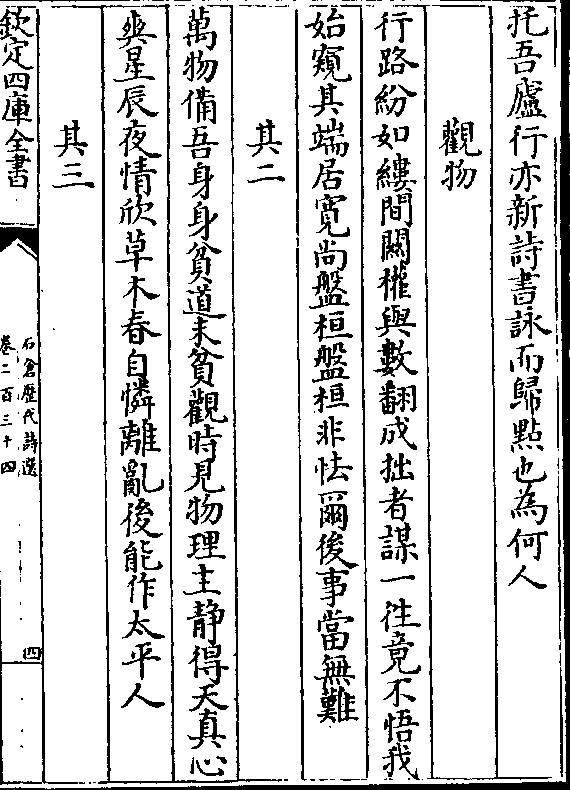 托吾廬行亦新詩書詠而歸點也為何人
觀物
行路紛如縷間關權與數翻成拙者謀一往竟不悟我
始窺其端居寛尚盤桓盤桓非怯爾後事當無難
其二
萬物備吾身身貧道未貧觀時見物理主静得天真心
爽星辰夜情欣草木春自憐離亂後能作太平人
其三
欽定四庫全書
石倉歴代詩選
卷二百三十四
四